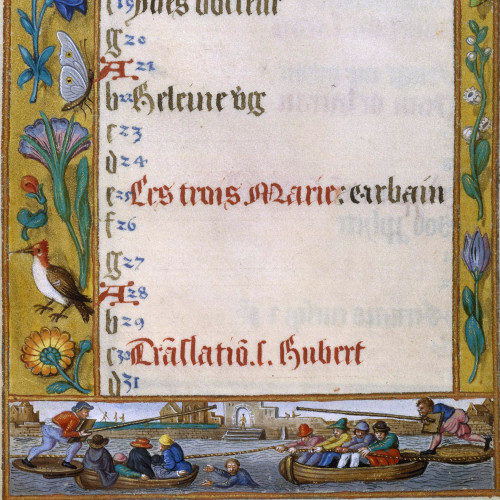 c 19 Yues docteur
g 20
A 21
b 22 Heleine vg
c 23
d 24
e 25 Les trois Marie: earbain
f 26
g 27
A 28
b 29
c 30 Trãslatiõ. s. Hubert
d 31